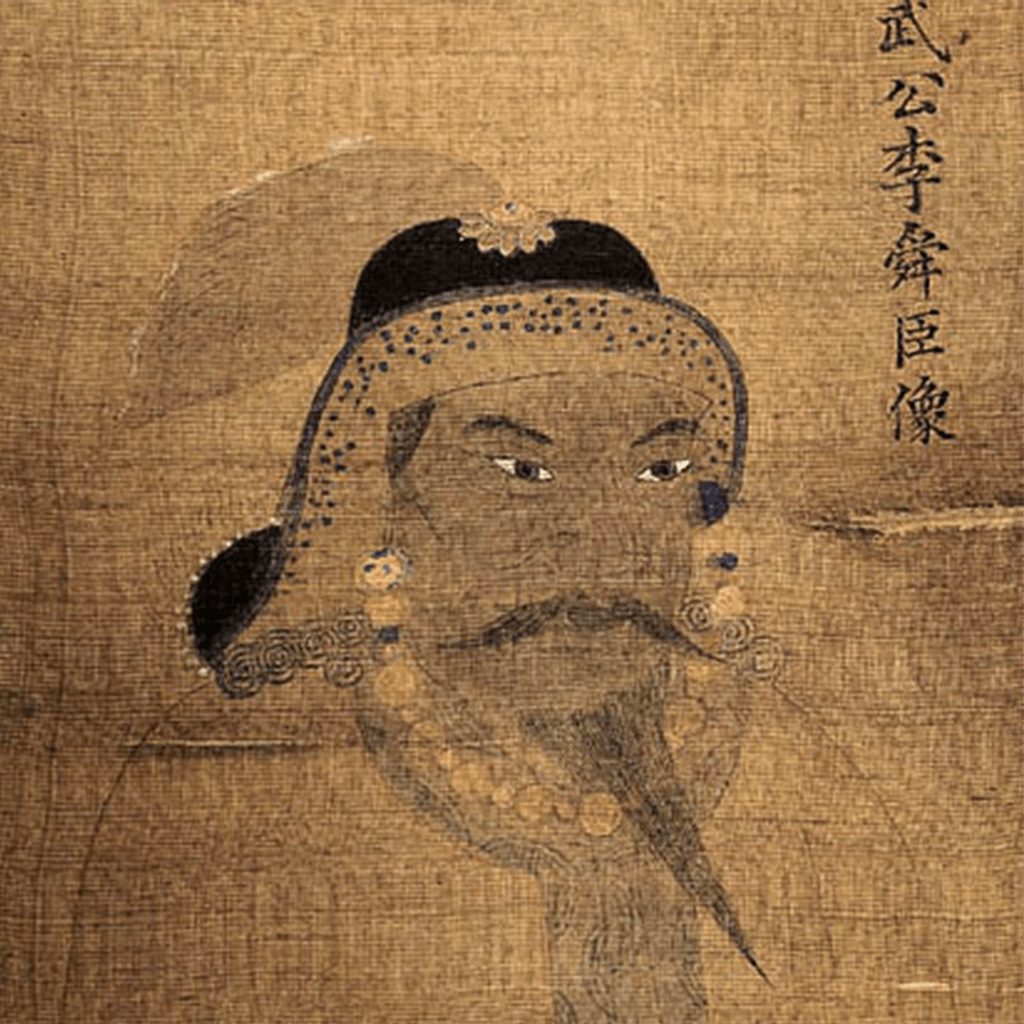 武公李舜臣像